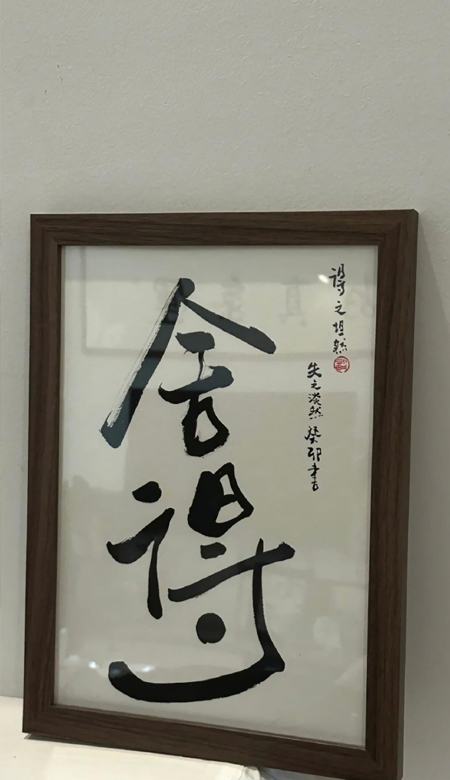 舍得
得之坦然
失之淡然 癸卯书